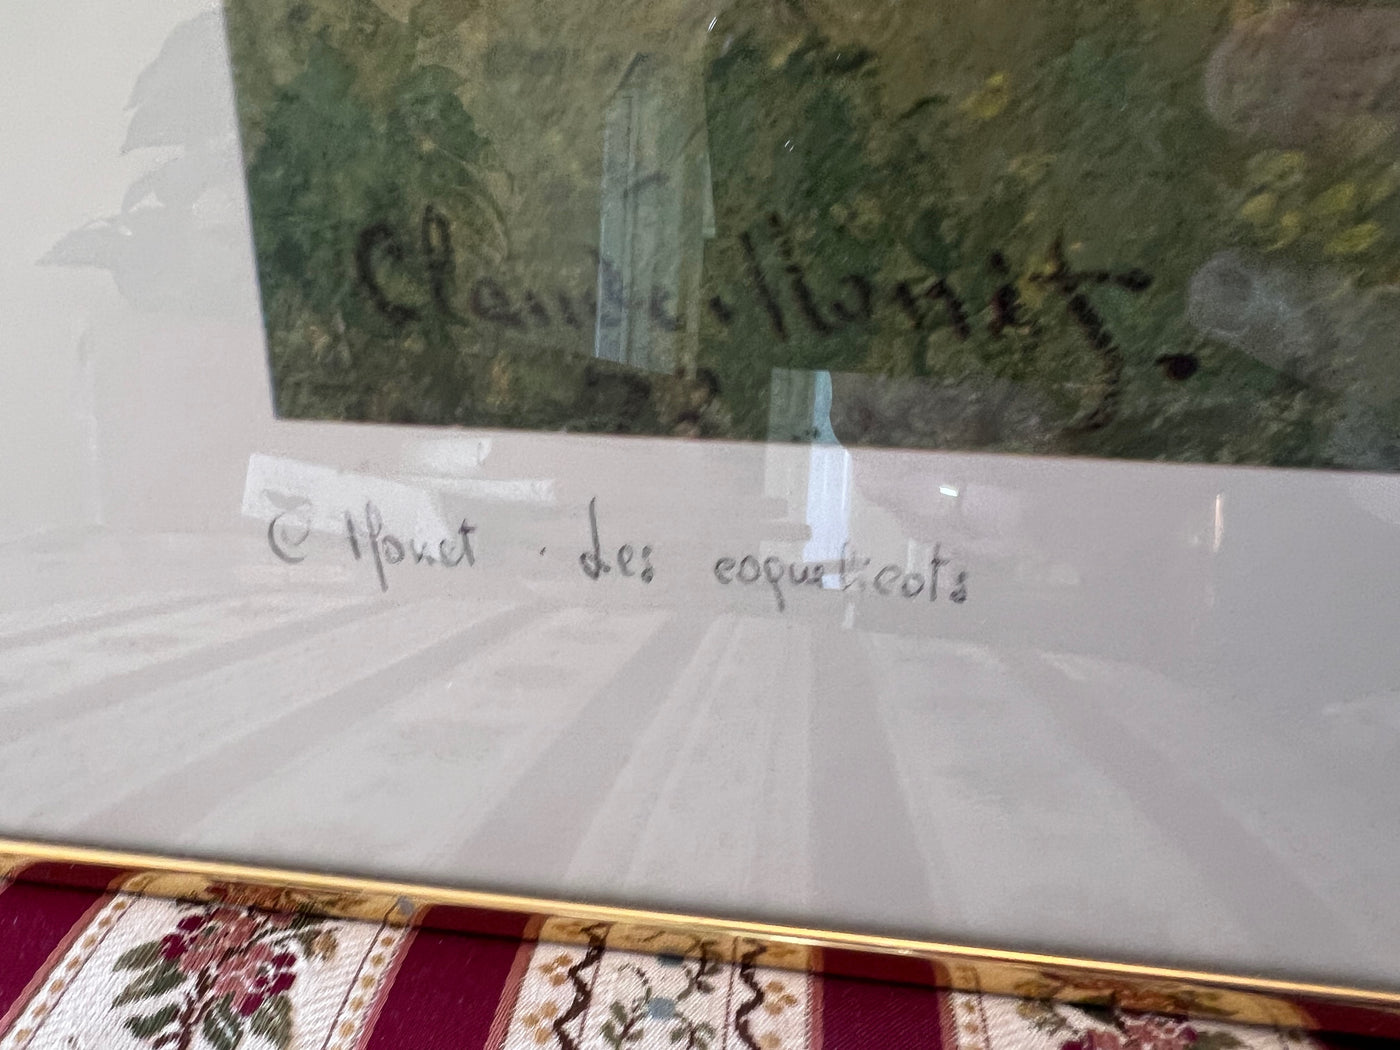 Claude Monet.
73
C Monet . Les coquelicots